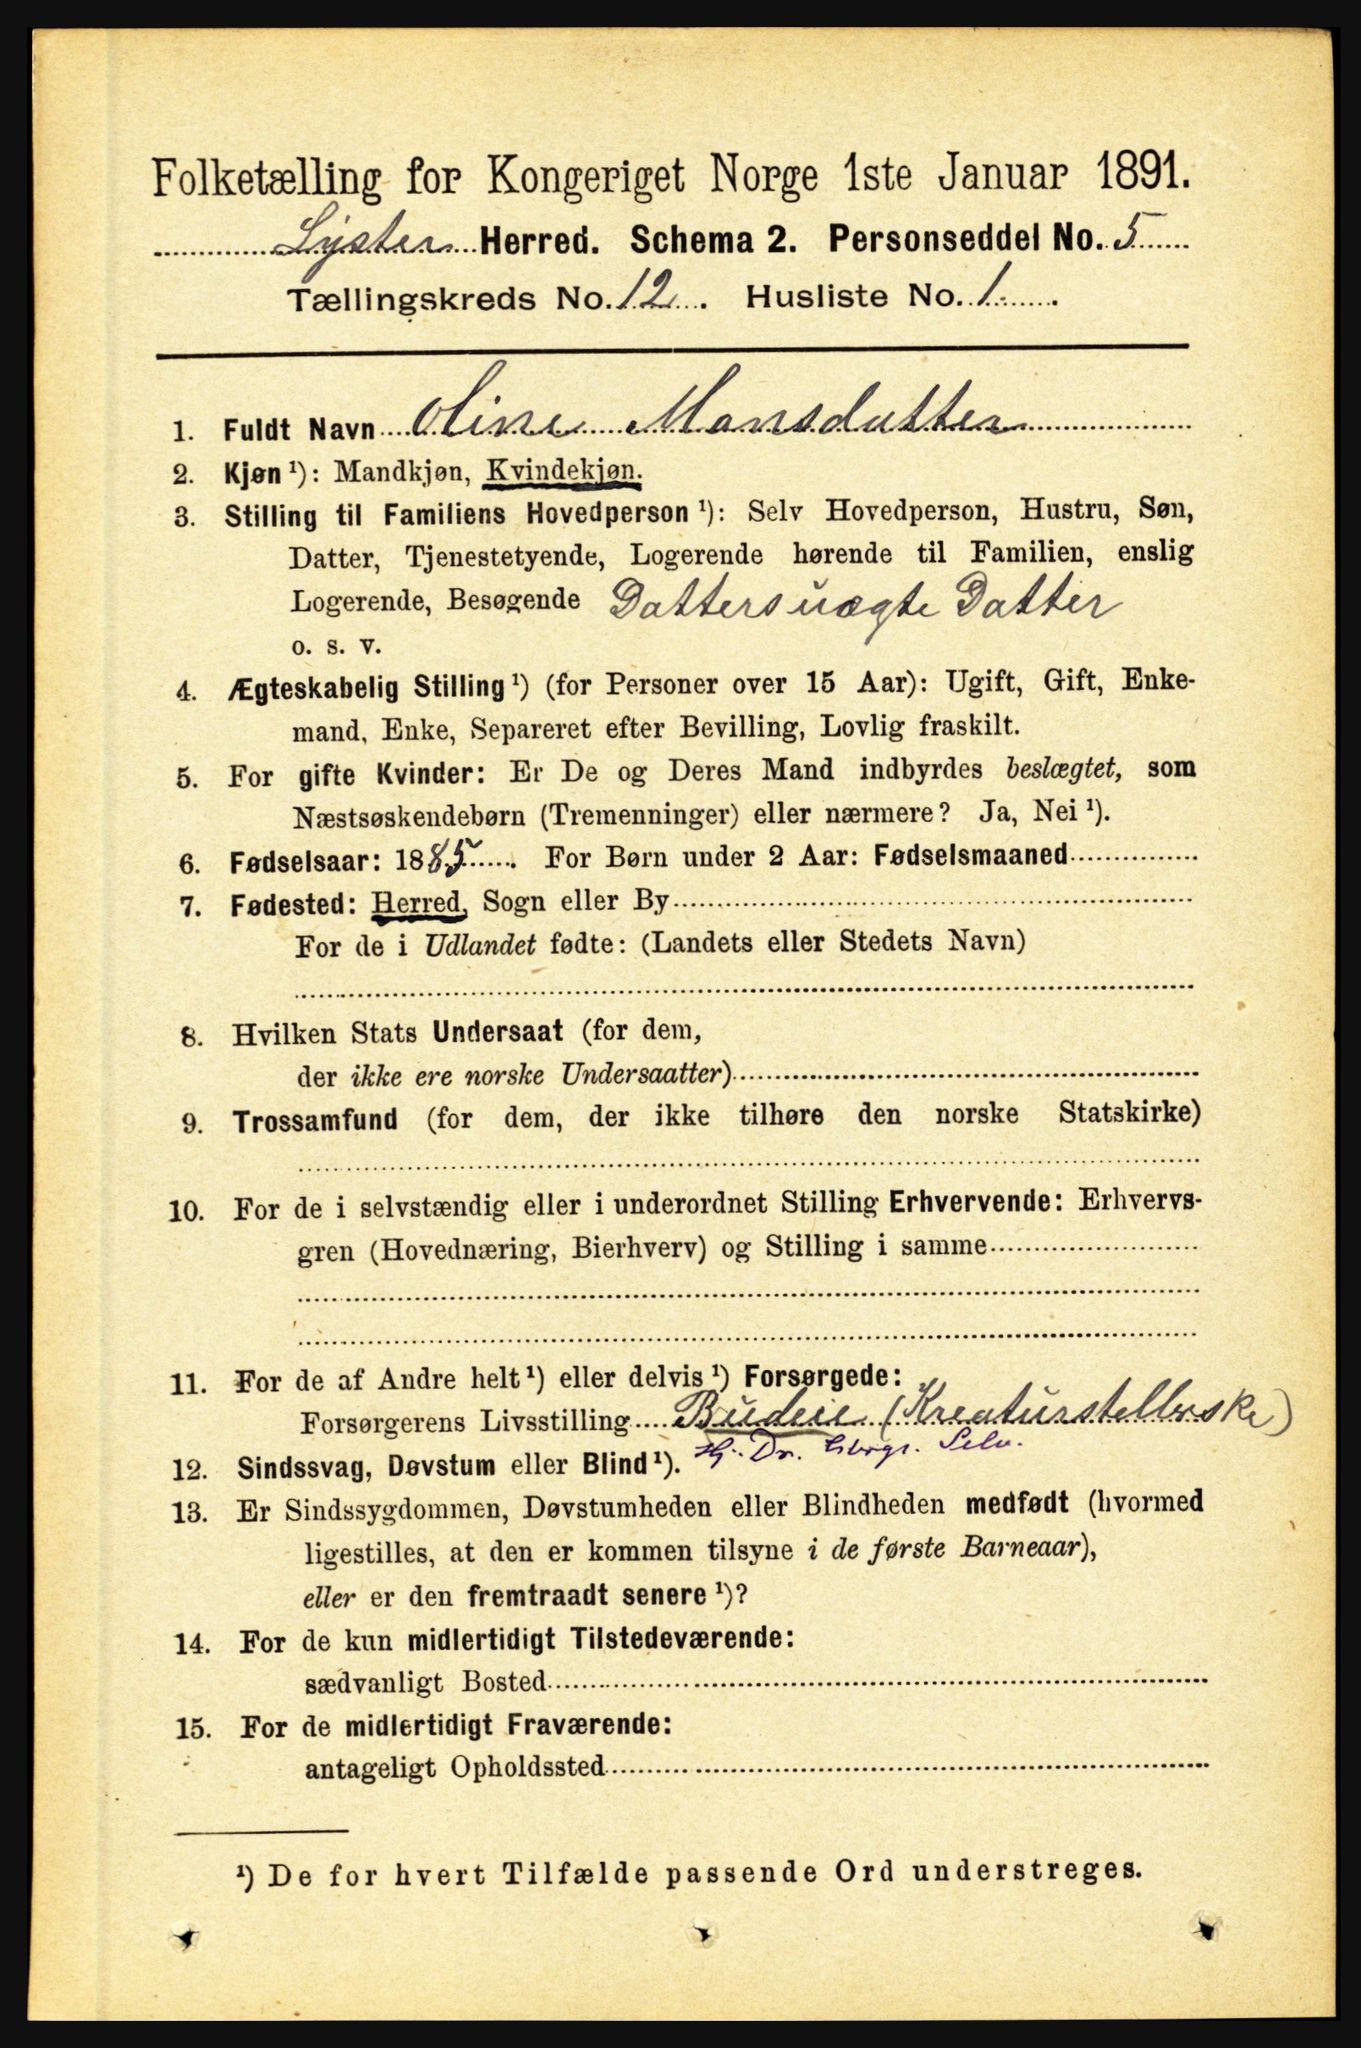 Folketælling for Kongeriget Norge 1ste Januar 1891.
Lyster Herred. Schema 2. Personseddel No. 5
Tællingskreds No. 12. Husliste No. 1
1. Fuldt Navn Oline Monsdatter
2. Kjøn ¹): Mandkjøn, Kvindekjøn.
3. Stilling til Familiens Hovedperson ¹): Selv Hovedperson, Hustru, Søn,
Datter, Tjenestetyende, Logerende hørende til Familien, enslig
Logerende, Besøgende Datters uægte Datter
o. s. v.
4. Ægteskabelig Stilling ¹) (for Personer over 15 Aar): Ugift, Gift, Enke-
mand, Enke, Separeret efter Bevilling, Lovlig fraskilt.
5. For gifte Kvinder: Er De og Deres Mand indbyrdes beslægtet, som
Næstsøskendebørn (Tremenninger) eller nærmere? Ja, Nei ¹).
6. Fødselsaar: 1885. For Børn under 2 Aar: Fødselsmaaned
7. Fødested: Herred, Sogn eller By
For de i Udlandet fødte: (Landets eller Stedets Navn)
8. Hvilken Stats Undersaat (for dem,
der ikke ere norske Undersaatter)
9. Trossamfund (for dem, der ikke tilhøre den norske Statskirke)
10. For de i selvstændig eller i underordnet Stilling Erhvervende: Erhvervs-
gren (Hovednæring, Bierhverv) og Stilling i samme
11. For de af Andre helt ¹) eller delvis ¹) Forsørgede:
Forsørgerens Livsstilling Budeie (Kreaturstellerske)
12. Sindssvag, Døvstum eller Blind ¹).
13. Er Sindssygdommen, Døvstumheden eller Blindheden medfødt (hvormed
ligestilles, at den er kommen tilsyne i de første Barneaar),
eller er den fremtraadt senere ¹)?
14. For de kun midlertidigt Tilstedeværende:
sædvanligt Bosted
15. For de midlertidigt Fraværende:
antageligt Opholdssted
¹) De for hvert Tilfælde passende Ord understreges.